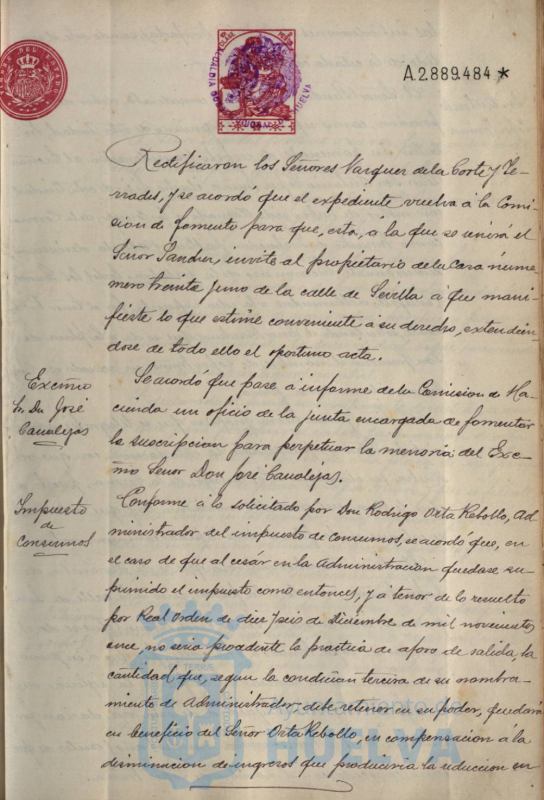 A2.889.484 *
ALCALDIA
HUELVA
Rectificaron los Señores Vazquez de la Corte y Te-
rrades, y se acordó que el expediente vuelva á la Comi-
sion de fomento para que, esta, á la que se unirá el
Señor Sanchez, invite al propietario de la casa núme
mero treinta y uno de la calle de Sevilla a que mani-
fieste lo que estime conveniente a su derecho, extendien-
dose de todo ello el oportuno acta.
Excmo
Sr. Dn José
Canalejas
Se acordó que pase a informe de la Comision de Ha-
cienda un oficio de la junta encargada de fomentar
la suscripcion para perpetuar la memoria del Exce-
mo Señor Don José Canalejas.
Impuesto
de
Consumos
Conforme a lo solicitado por Don Rodrigo Orta Rebollo, Ad
ministrador del impuesto de consumos, se acordó que, en
el caso de que al cesár en la Administracion quedase su-
primido el impuesto como entonces, y a tenor de lo resuelto
por Real Orden de diez y seis de Diciembre de mil novecientos
once, no seria procedente la practica de aforo de salida, la
cantidad que, segun la condicion tercera de su nombra-
miento de Administrador, debe retener en su poder, quedará
en beneficio del Señor Orta Rebollo, en compensacion á la
disminucion de ingresos que produciria la reduccion en
HUELVA